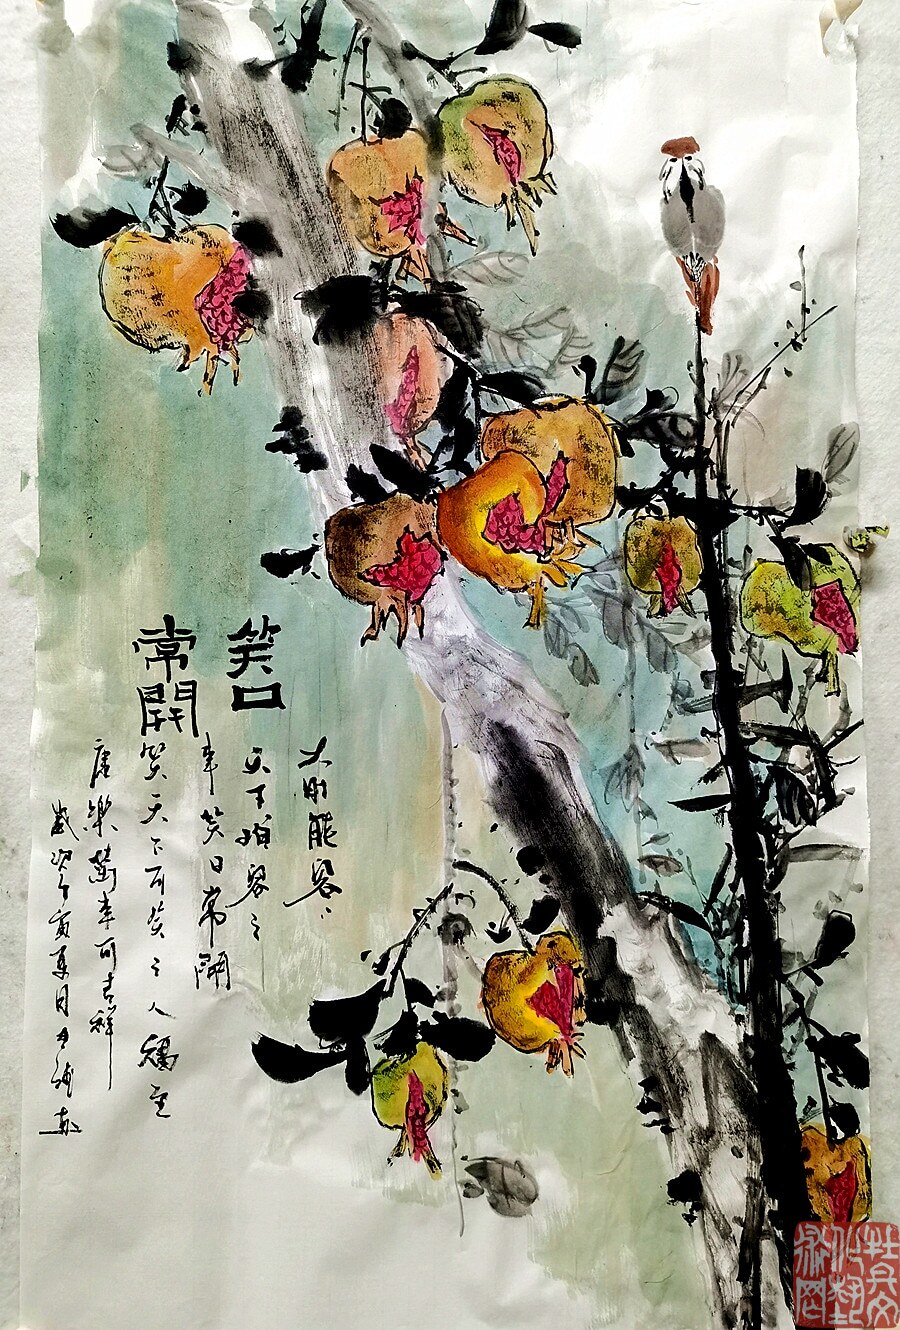 笑口
常開
大肚能容
天下 容之
笑口常開
笑天下可笑之人福至
樂萬年可吉祥
歲次壬寅夏月